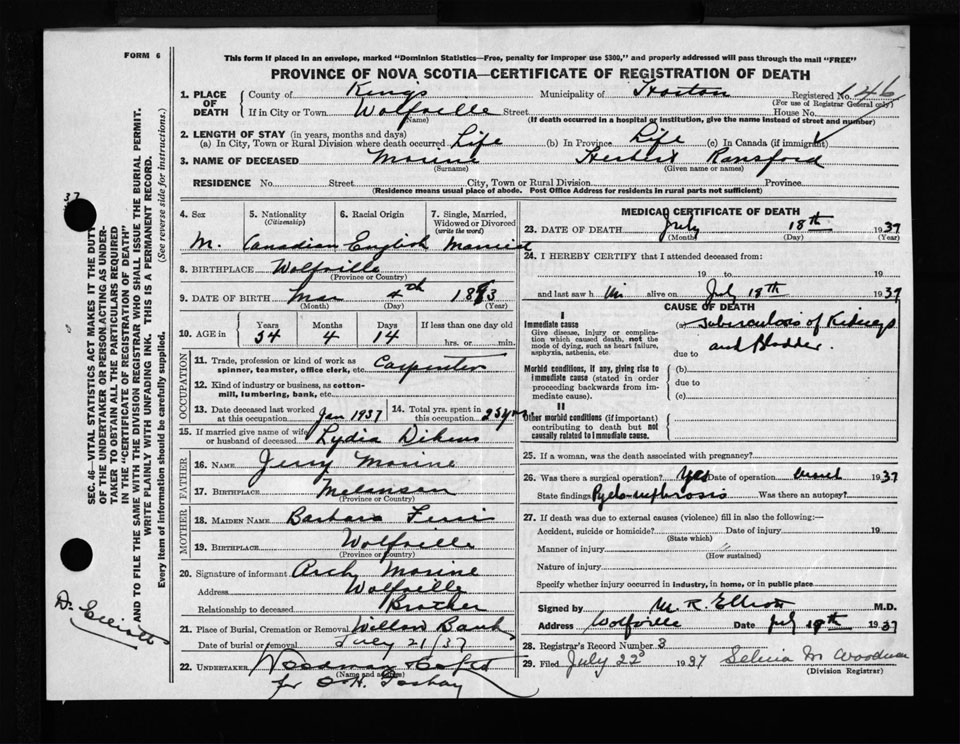 FORM 6
This form if placed in an envelope, marked "Dominion Statistics—Free, penalty for improper use $300," and properly addressed will pass through the mail "FREE"
PROVINCE OF NOVA SCOTIA—CERTIFICATE OF REGISTRATION OF DEATH
1. PLACE OF DEATH County of Kings Municipality of Horton Registered No. 146
(For use of Registrar General only)
If in City or Town Wolfville Street House No.
(Name) (If death occurred in a hospital or institution, give the name instead of street and number)
2. LENGTH OF STAY (in years, months and days)
(a) In City, Town or Rural Division where death occurred Life (b) In Province Life (c) In Canada (if immigrant)
3. NAME OF DECEASED Morine Herbert Ransford
(Surname) (Given name or names)
RESIDENCE No. Street City, Town or Rural Division Province
(Residence means usual place of abode. Post Office Address for residents in rural parts not sufficient)
4. Sex 5. Nationality (Citizenship) 6. Racial Origin 7. Single, Married, Widowed or Divorced (write the word)
M. Canadian English Married
8. BIRTHPLACE Wolfville
(Province or Country)
9. DATE OF BIRTH Mar 4th 18 3
(Month) (Day) (Year)
10. AGE in Years Months Days If less than one day old
34 4 14 hrs. or min.
OCCUPATION
11. Trade, profession or kind of work as spinner, teamster, office clerk, etc. Carpenter
12. Kind of industry or business, as cotton-mill, lumbering, bank, etc.
13. Date deceased last worked at this occupation Jan 1937 14. Total yrs. spent in this occupation 25 yrs
15. If married give name of wife or husband of deceased Lydia
FATHER
16. NAME Jerry Morine
17. BIRTHPLACE Melanson
(Province or Country)
MOTHER
18. MAIDEN NAME Barbara
19. BIRTHPLACE Wolfville
(Province or Country)
20. Signature of informant Arch Morine
Address Wolfville
Relationship to deceased Brother
21. Place of Burial, Cremation or Removal Willow Bank
Date of burial or removal July 21/37
22. UNDERTAKER Woodman
(Name and address)
for
MEDICAL CERTIFICATE OF DEATH
23. DATE OF DEATH July 18th 1937
(Month) (Day) (Year)
24. I HEREBY CERTIFY that I attended deceased from:
19 to 19
and last saw h im alive on July 18th 1937
CAUSE OF DEATH
I
Immediate cause
Give disease, injury or complication which caused death, not the mode of dying, such as heart failure, asphyxia, asthenia, etc.
(a) Tuberculosis of Kidneys
and Bladder.
due to
Morbid conditions, if any, giving rise to immediate cause (stated in order proceeding backwards from immediate cause).
(b)
due to
(c)
II
Other morbid conditions (if important) contributing to death but not causally related to immediate cause.
25. If a woman, was the death associated with pregnancy?
26. Was there a surgical operation? Yes Date of operation March 1937
State findings Pyelonephrosis Was there an autopsy?
27. If death was due to external causes (violence) fill in also the following:—
Accident, suicide or homicide? Date of injury 19
(State which)
Manner of injury
(How sustained)
Nature of injury
Specify whether injury occurred in industry, in home, or in public place
Signed by M. R. Elliott M.D.
Address Wolfville Date July 19th 1937
28. Registrar's Record Number 3
29. Filed July 22 1937 Selina M Woodman
(Division Registrar)
SEC. 46—VITAL STATISTICS ACT MAKES IT THE DUTY
OF THE UNDERTAKER OR PERSON ACTING AS UNDER-
TAKER TO OBTAIN ALL THE PARTICULARS REQUIRED
IN THE "CERTIFICATE OF REGISTRATION OF DEATH"
AND TO FILE THE SAME WITH THE DIVISION REGISTRAR WHO SHALL ISSUE THE BURIAL PERMIT.
WRITE PLAINLY WITH UNFADING INK. THIS IS A PERMANENT RECORD.
Every item of information should be carefully supplied. (See reverse side for instructions.)
37
Dr Elliott